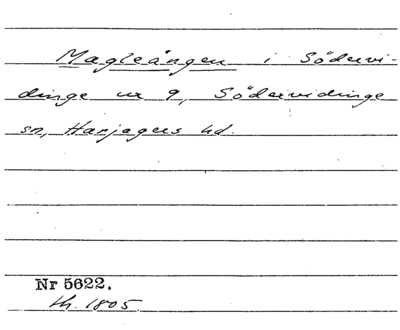 Magleängen i Södervi-
dinge nr 9, Södervidinge
sn, Harjagers hd.
Nr 5622.
th. 1805